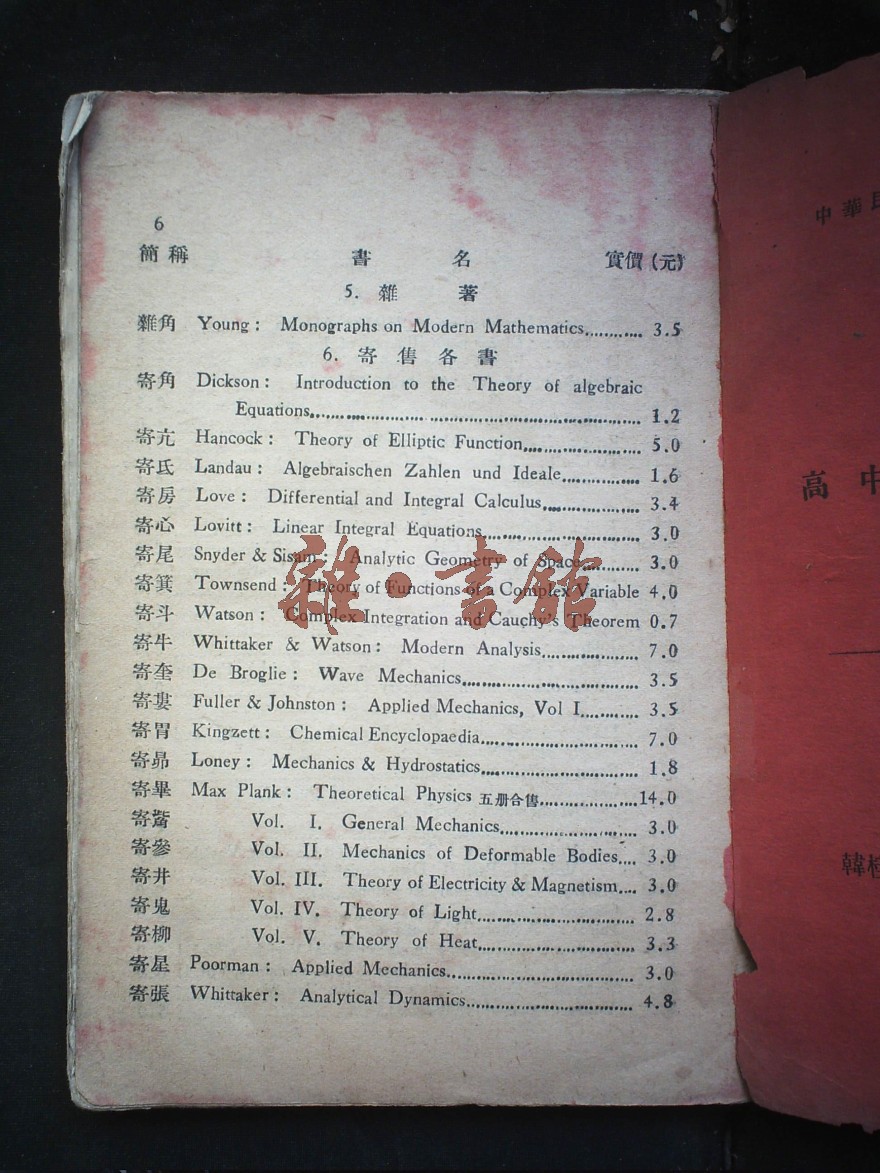 6
簡稱 書名 實價(元)
5. 雜著
雜角 Young: Monographs on Modern Mathematics............ 3.5
6. 寄售各書
寄角 Dickson: Introduction to the Theory of algebraic
Equations............ 1.2
寄亢 Hancock: Theory of Elliptic Function............ 5.0
寄氐 Landau: Algebraischen Zahlen und Ideale............ 1.6
寄房 Love: Differential and Integral Calculus............ 3.4
寄心 Lovitt: Linear Integral Equations............ 3.0
寄尾 Snyder & Sisam: Analytic Geometry of Space............ 3.0
寄箕 Townsend: Theory of Functions of a Complex Variable 4.0
寄斗 Watson: Complex Integration and Cauchy's Theorem 0.7
寄牛 Whittaker & Watson: Modern Analysis............ 7.0
寄奎 De Broglie: Wave Mechanics............ 3.5
寄婁 Fuller & Johnston: Applied Mechanics, Vol I............ 3.5
寄胃 Kingzett: Chemical Encyclopaedia............ 7.0
寄昴 Loney: Mechanics & Hydrostatics............ 1.8
寄畢 Max Plank: Theoretical Physics 五册合售............14.0
寄觜 Vol. I. General Mechanics............ 3.0
寄參 Vol. II. Mechanics of Deformable Bodies.... 3.0
寄井 Vol. III. Theory of Electricity & Magnetism.... 3.0
寄鬼 Vol. IV. Theory of Light............ 2.8
寄柳 Vol. V. Theory of Heat............ 3.3
寄星 Poorman: Applied Mechanics............ 3.0
寄張 Whittaker: Analytical Dynamics............ 4.8
雜·書館
中華民
高中
韓